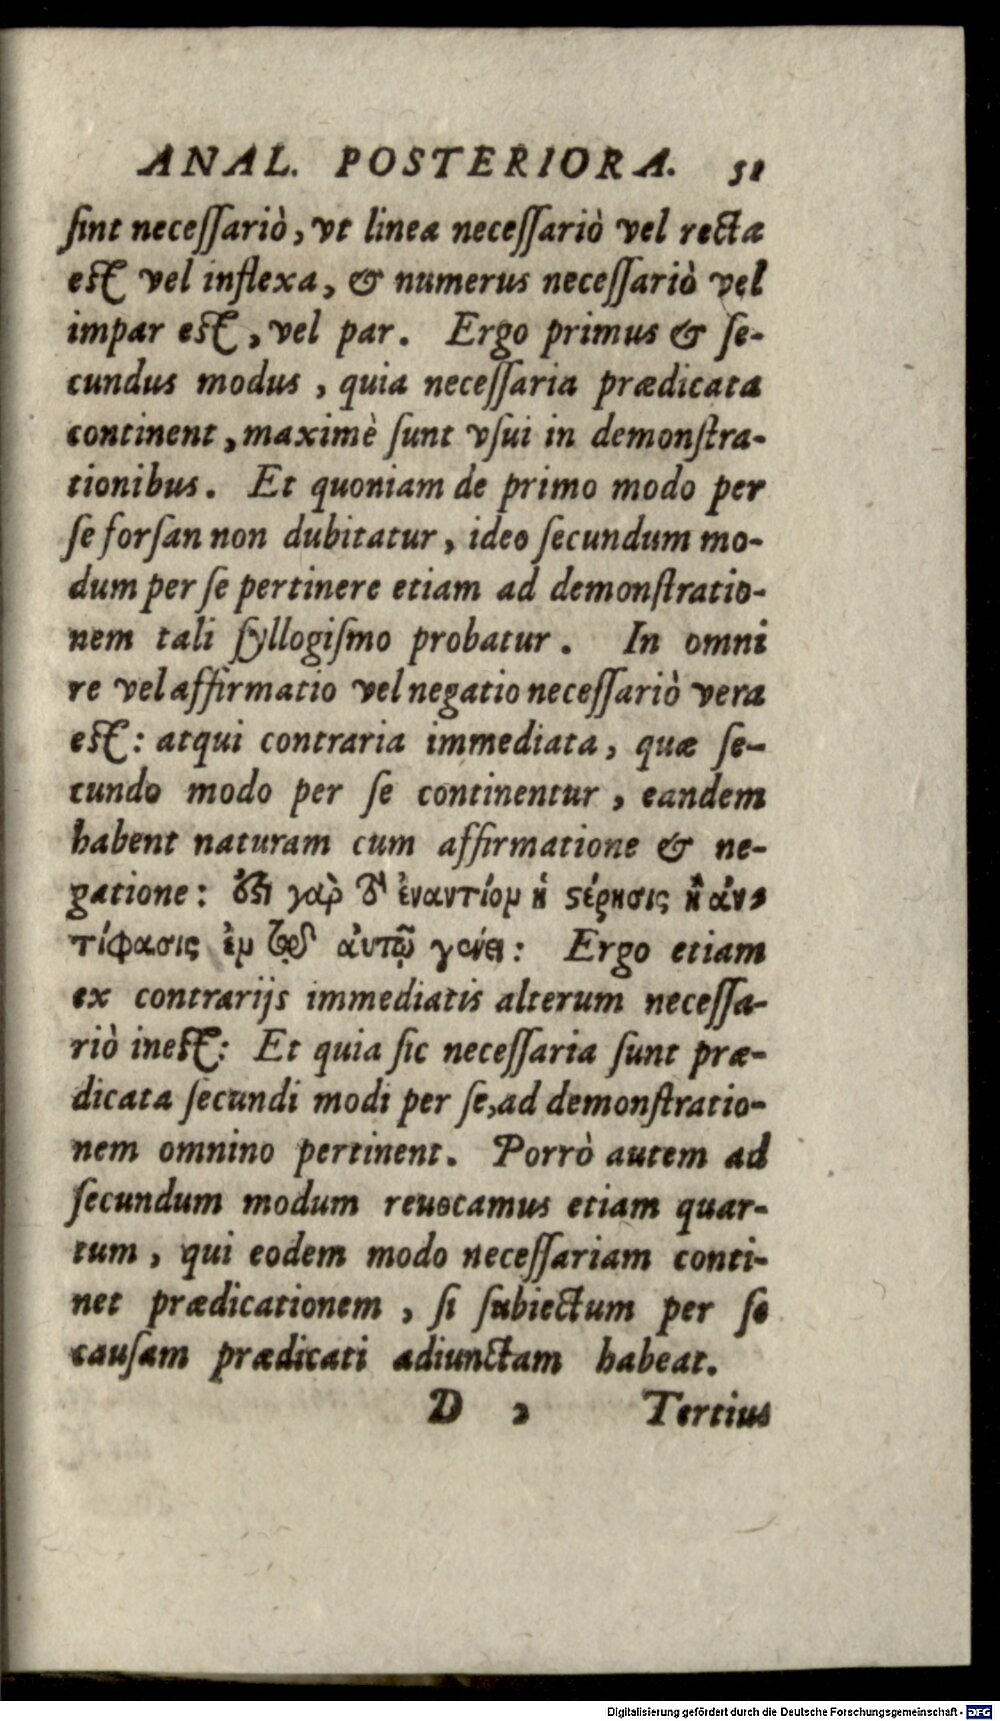 ANAL. POSTERIORA. 51
sint necessariò, vt linea necessariò vel recta
est vel inflexa, & numerus necessariò vel
impar est, vel par. Ergo primus & se-
cundus modus, quia necessaria prædicata
continent, maximè sunt vsui in demonstra-
tionibus. Et quoniam de primo modo per
se forsan non dubitatur, ideo secundum mo-
dum per se pertinere etiam ad demonstratio-
nem tali syllogismo probatur. In omni
re vel affirmatio vel negatio necessariò vera
est: atqui contraria immediata, quæ se-
cundo modo per se continentur, eandem
habent naturam cum affirmatione & ne-
gatione: ἔστι γὰρ τὸ ἐναντίον ἢ στέρησις ἢ ἀν-
τίφασις ἐν τῷ αὐτῷ γένει: Ergo etiam
ex contrarijs immediatis alterum necessa-
riò inest: Et quia sic necessaria sunt præ-
dicata secundi modi per se, ad demonstratio-
nem omnino pertinent. Porrò autem ad
secundum modum reuocamus etiam quar-
tum, qui eodem modo necessariam conti-
net prædicationem, si subiectum per se
causam prædicati adiunctam habeat.
D 2 Tertius
Digitalisierung gefördert durch die Deutsche Forschungsgemeinschaft - DFG